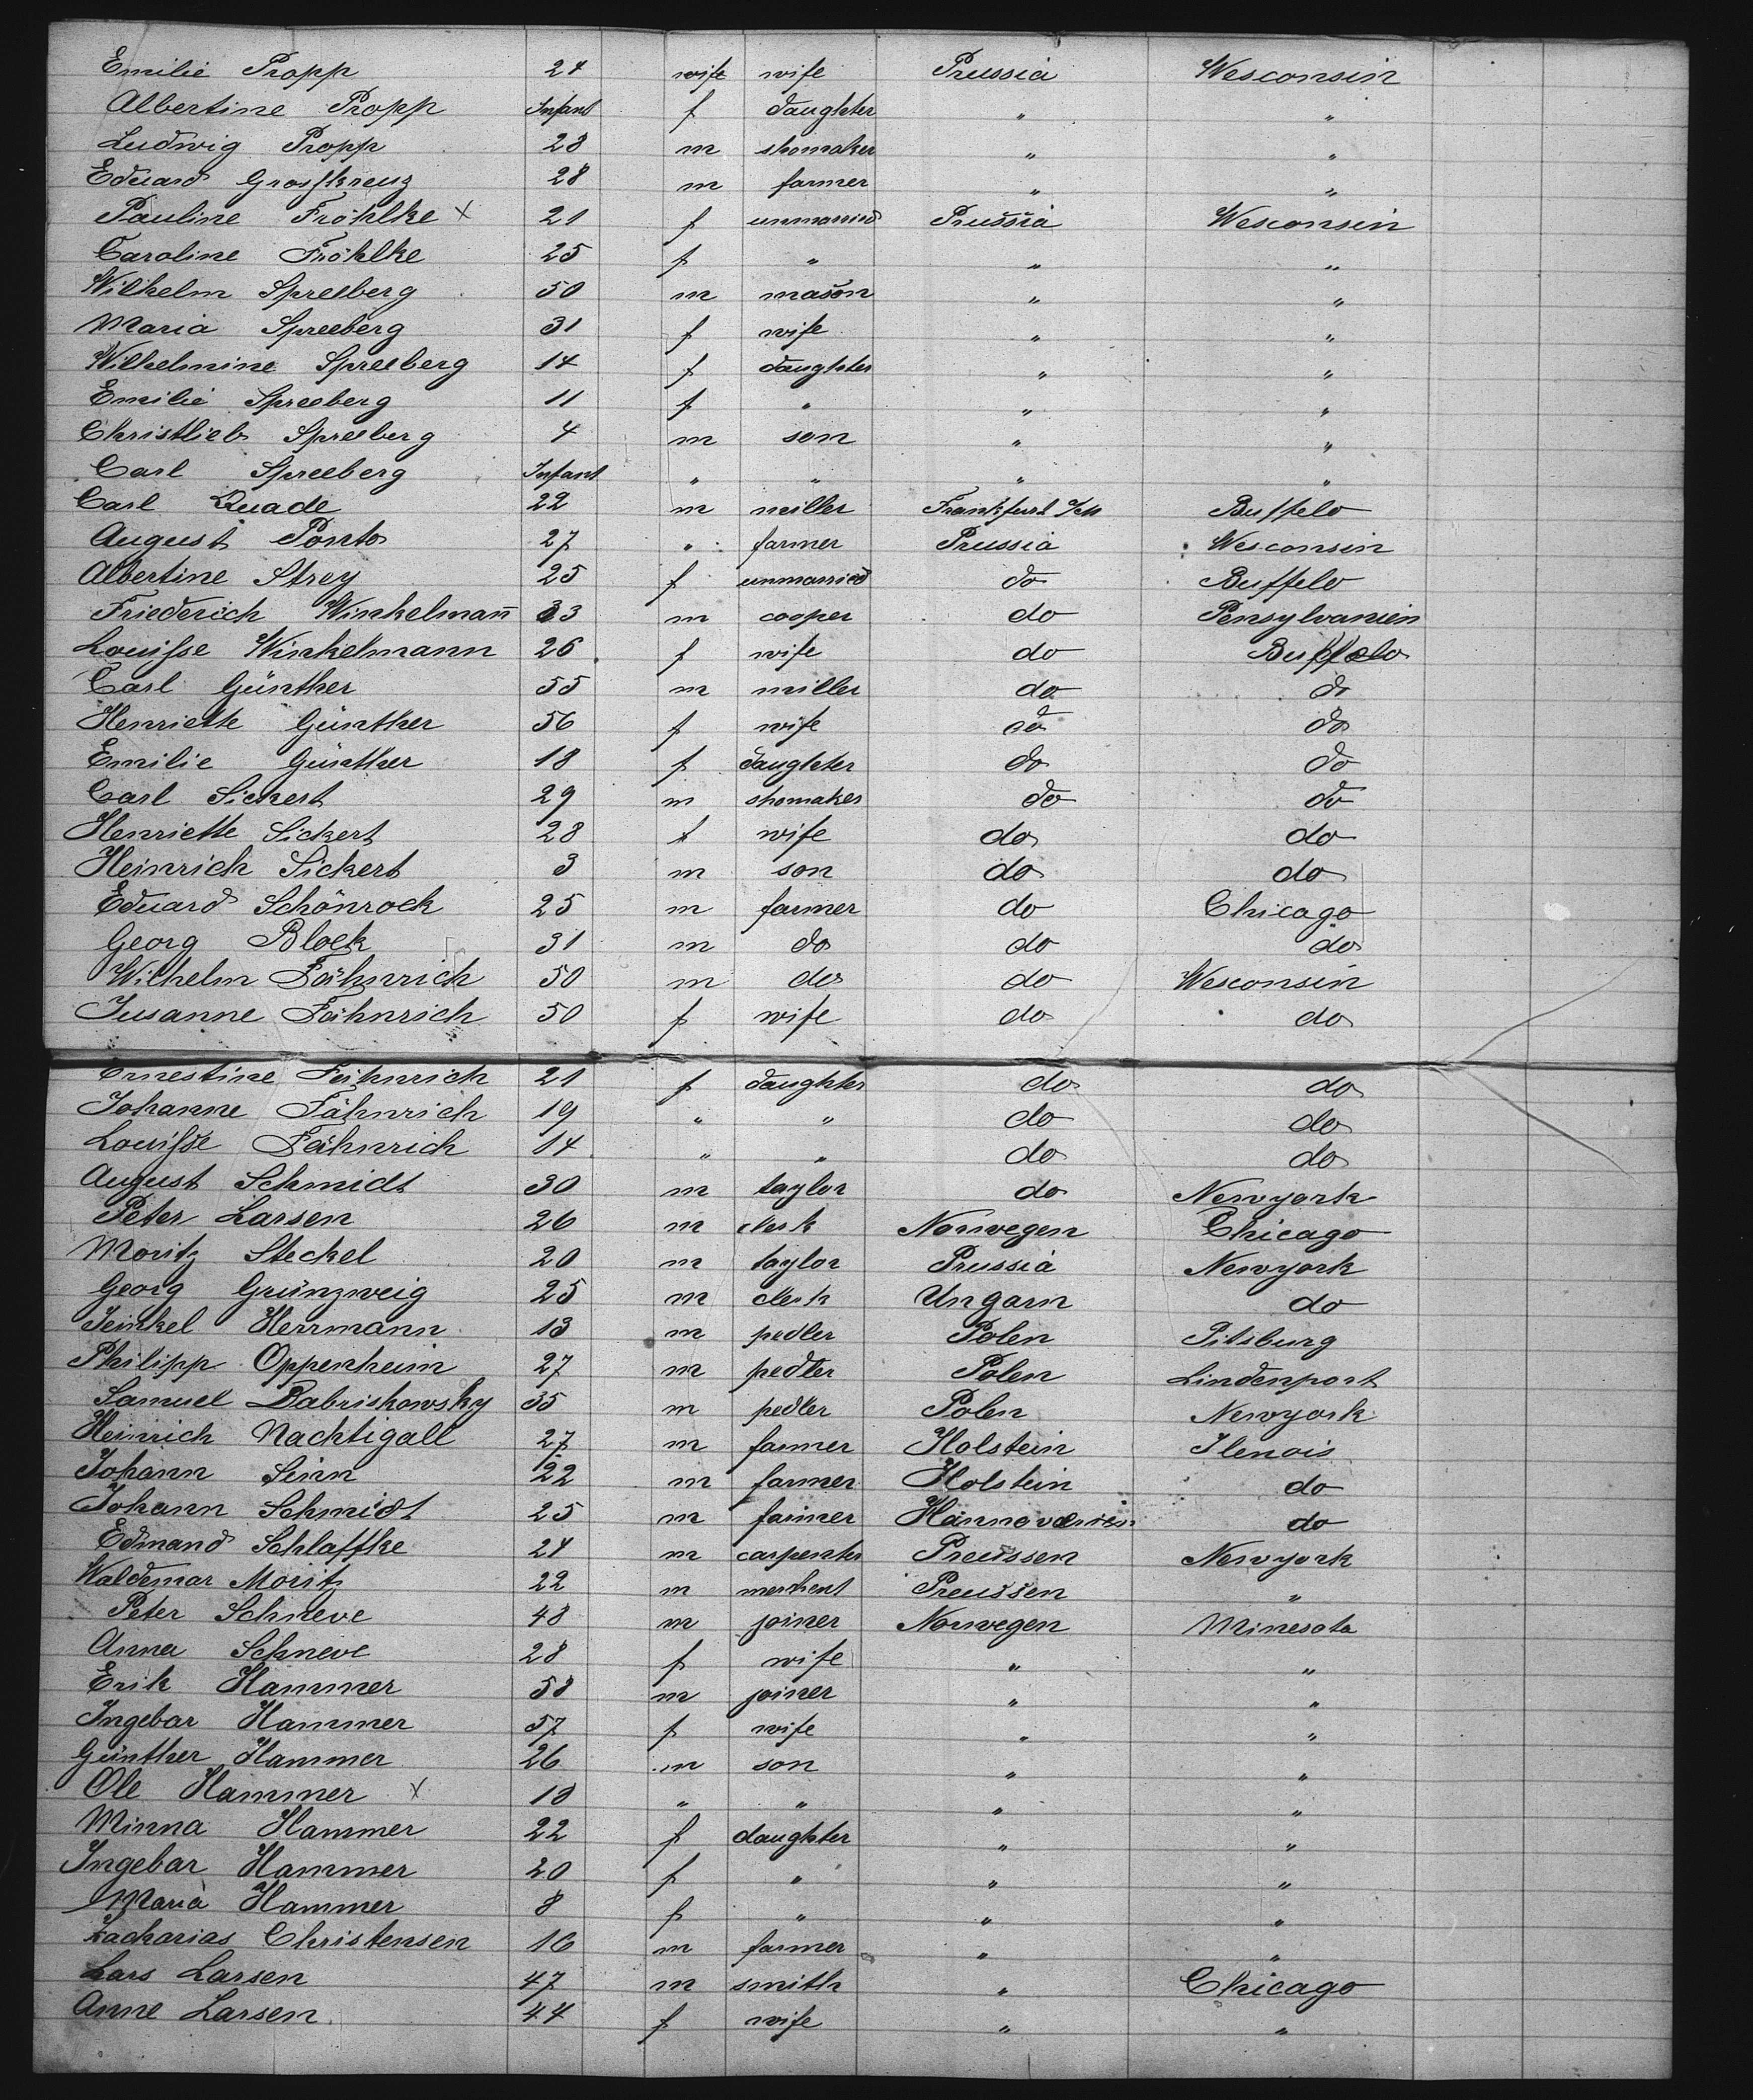 Emilie Propp 24 wife wife Prussia Wesconsin
Albertine Propp Infant f daughter " "
Ludwig Propp 28 m shomaker " "
Eduard Grosskreuz 28 m farmer " "
Pauline Fröhlke x 21 f unmarried Prussia Wesconsin
Caroline Fröhlke 25 f " " "
Wilhelm Spreeberg 50 m mason " "
Maria Spreeberg 31 f wife " "
Wilhelmine Spreeberg 14 f daughter " "
Emilie Spreeberg 11 f " " "
Christlieb Spreeberg 4 m son " "
Carl Spreeberg Infant " " " "
Carl Quade 22 m miller Frankfurt Buffelo
August Ponto 27 " farmer Prussia Wesconsin
Albertine Strey 25 f unmarried do Buffelo
Friederich Winkelmañ 33 m cooper do Pensylvanien
Louisse Winkelmann 26 f wife do Buffelo
Carl Günther 55 m miller do do
Henriette Günther 56 f wife do do
Emilie Günther 18 f daughter do do
Carl Sickert 29 m shomaker do do
Henriette Sickert 28 f wife do do
Heinrich Sickert 3 m son do do
Eduard Schönrock 25 m farmer do Chicago
Georg Block 31 m do do do
Wilhelm Fähnrich 50 m do do Wesconsin
Susanne Fähnrich 50 f wife do do
Ernestine Fähnrich 21 f daughter do do
Johanne Fähnrich 19 " " do do
Louisse Fähnrich 14 " " do do
August Schmidt 30 m taylor do Newyork
Peter Larsen 26 m clerk Norwegen Chicago
Moritz Steckel 20 m taylor Prussia Newyork
Georg Grünzweig 25 m clerk Ungarn do
Jeinkel Herrmann 13 m pedler Polen Pitsburg
Philipp Oppenheim 27 m pedler Polen Lindenport
Samuel Babriskowsky 35 m pedler Polen Newyork
Heinrich Nachtigall 27 m farmer Holstein Ilenois
Johann Sinn 22 m farmer Holstein do
Johann Schmidt 25 m farmer do
Edmand Schlaffke 24 m carpenter Preussen Newyork
Waldemar Moritz 22 m merhent Preussen "
Peter Schneve 48 m joiner Norwegen Minesota
Anna Schneve 28 f wife " "
Erik Hammer 58 m joiner " "
Ingebar Hammer 57 f wife " "
Günther Hammer 26 m son " "
Ole Hammer x 18 " " " "
Minna Hammer 22 f daughter " "
Ingebar Hammer 20 f " " "
Maria Hammer 8 f " " "
Zacharias Christensen 16 m farmer " "
Lars Larsen 47 m smith " Chicago
Anne Larsen 44 f wife " "